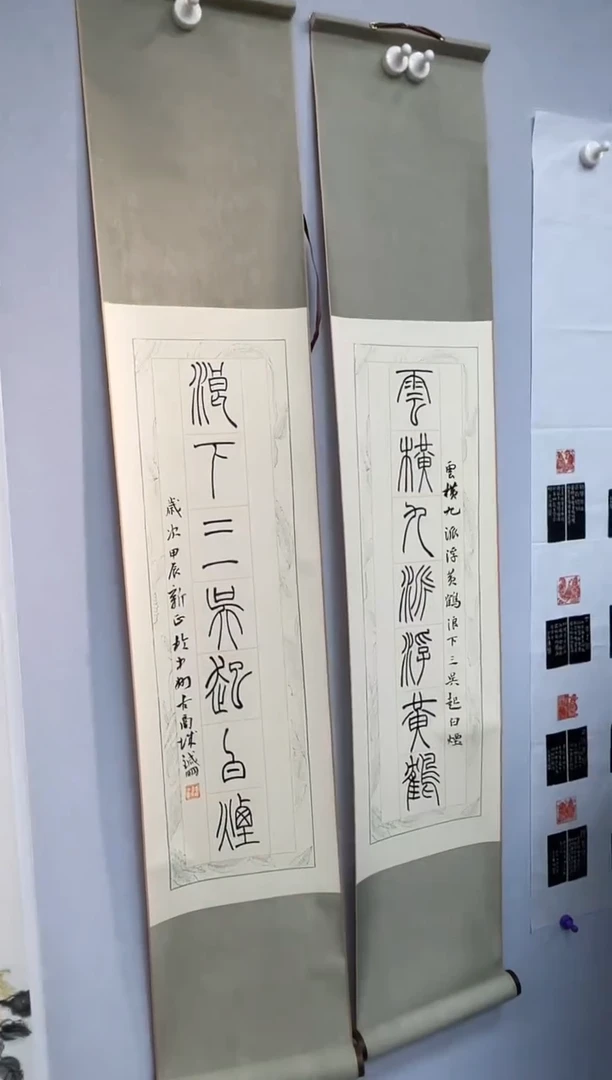 雲橫九派浮黃鶴
雲橫九派浮黃鶴浪下三吳起白煙
浪下三吳起白煙
歲次甲辰新正於